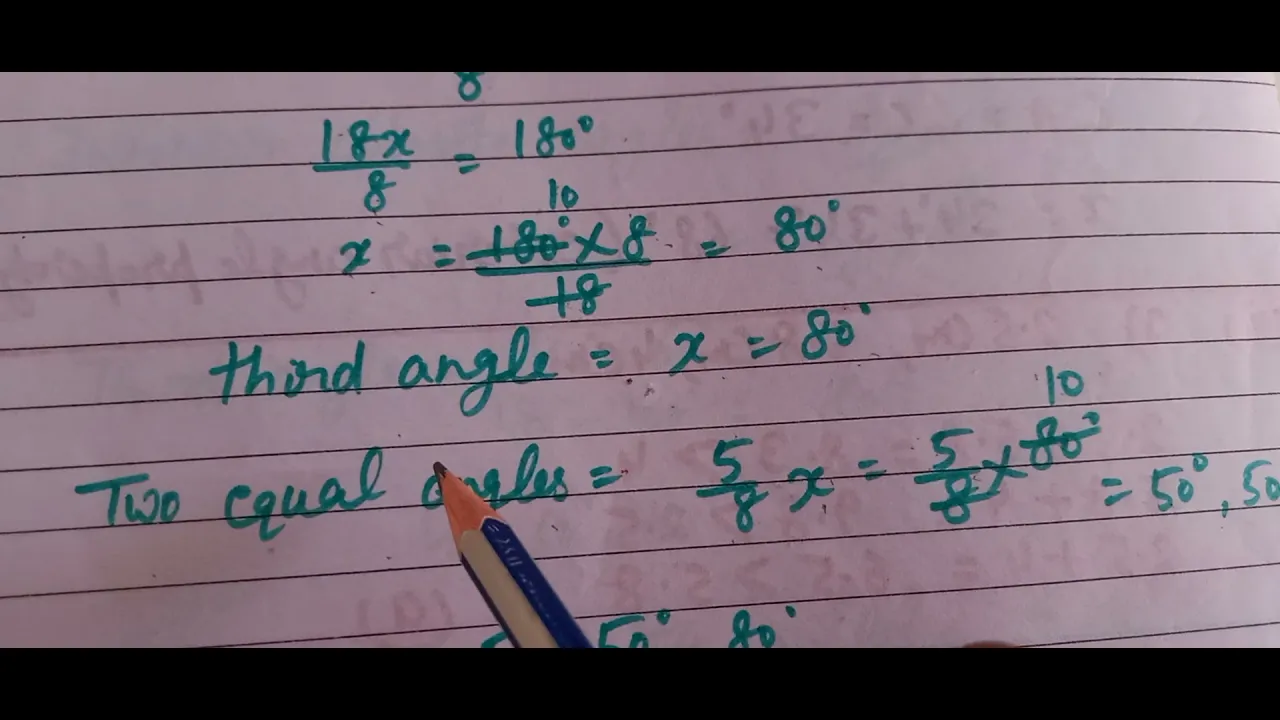 8
18x/8 = 180°
10
x = 180° × 8/18 = 80°
third angle = x = 80°
10
Two equal angles = 5/8 x = 5/8 × 80° = 50°, 50
50° 80°